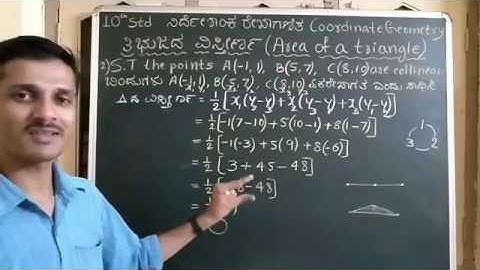 10th Std ನಿರ್ದೇಶಾಂಕ ರೇಖಾಗಣಿತ (Coordinate Geometry)
ತ್ರಿಭುಜದ ವಿಸ್ತೀರ್ಣ (Area of a triangle)
2) S.T the points A(-1, 1), B(5, 7), C(8, 10) are collinear
ಬಿಂದುಗಳು A(-1, 1), B(5, 7), C(8, 10) ಏಕರೇಖಾಗತ ಎಂದು ಸಾಧಿಸಿ
Δ ದ ವಿಸ್ತೀರ್ಣ = 1/2 [x₁(y₂-y₃)+x₂(y₃-y₁)+x₃(y₁-y₂)]
= 1/2 [-1(7-10)+5(10-1)+8(1-7)]
= 1/2 [-1(-3)+5(9)+8(-6)]
= 1/2 [3+45-48]
= 1/2 [ - 48]
=
1
3 2